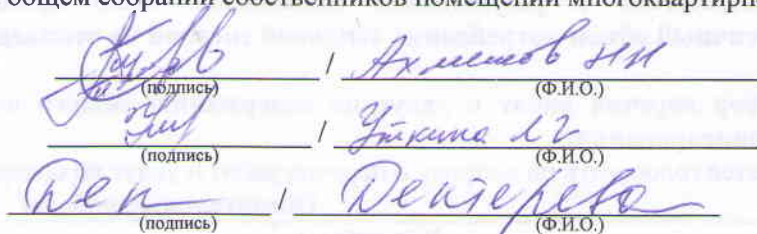 общем собрании собственников помещений многоквартирн
/ Ахметов НН
(подпись) (Ф.И.О.)
/ Уткина
(подпись) (Ф.И.О.)
Ден / Дентерева
(подпись) (Ф.И.О.)